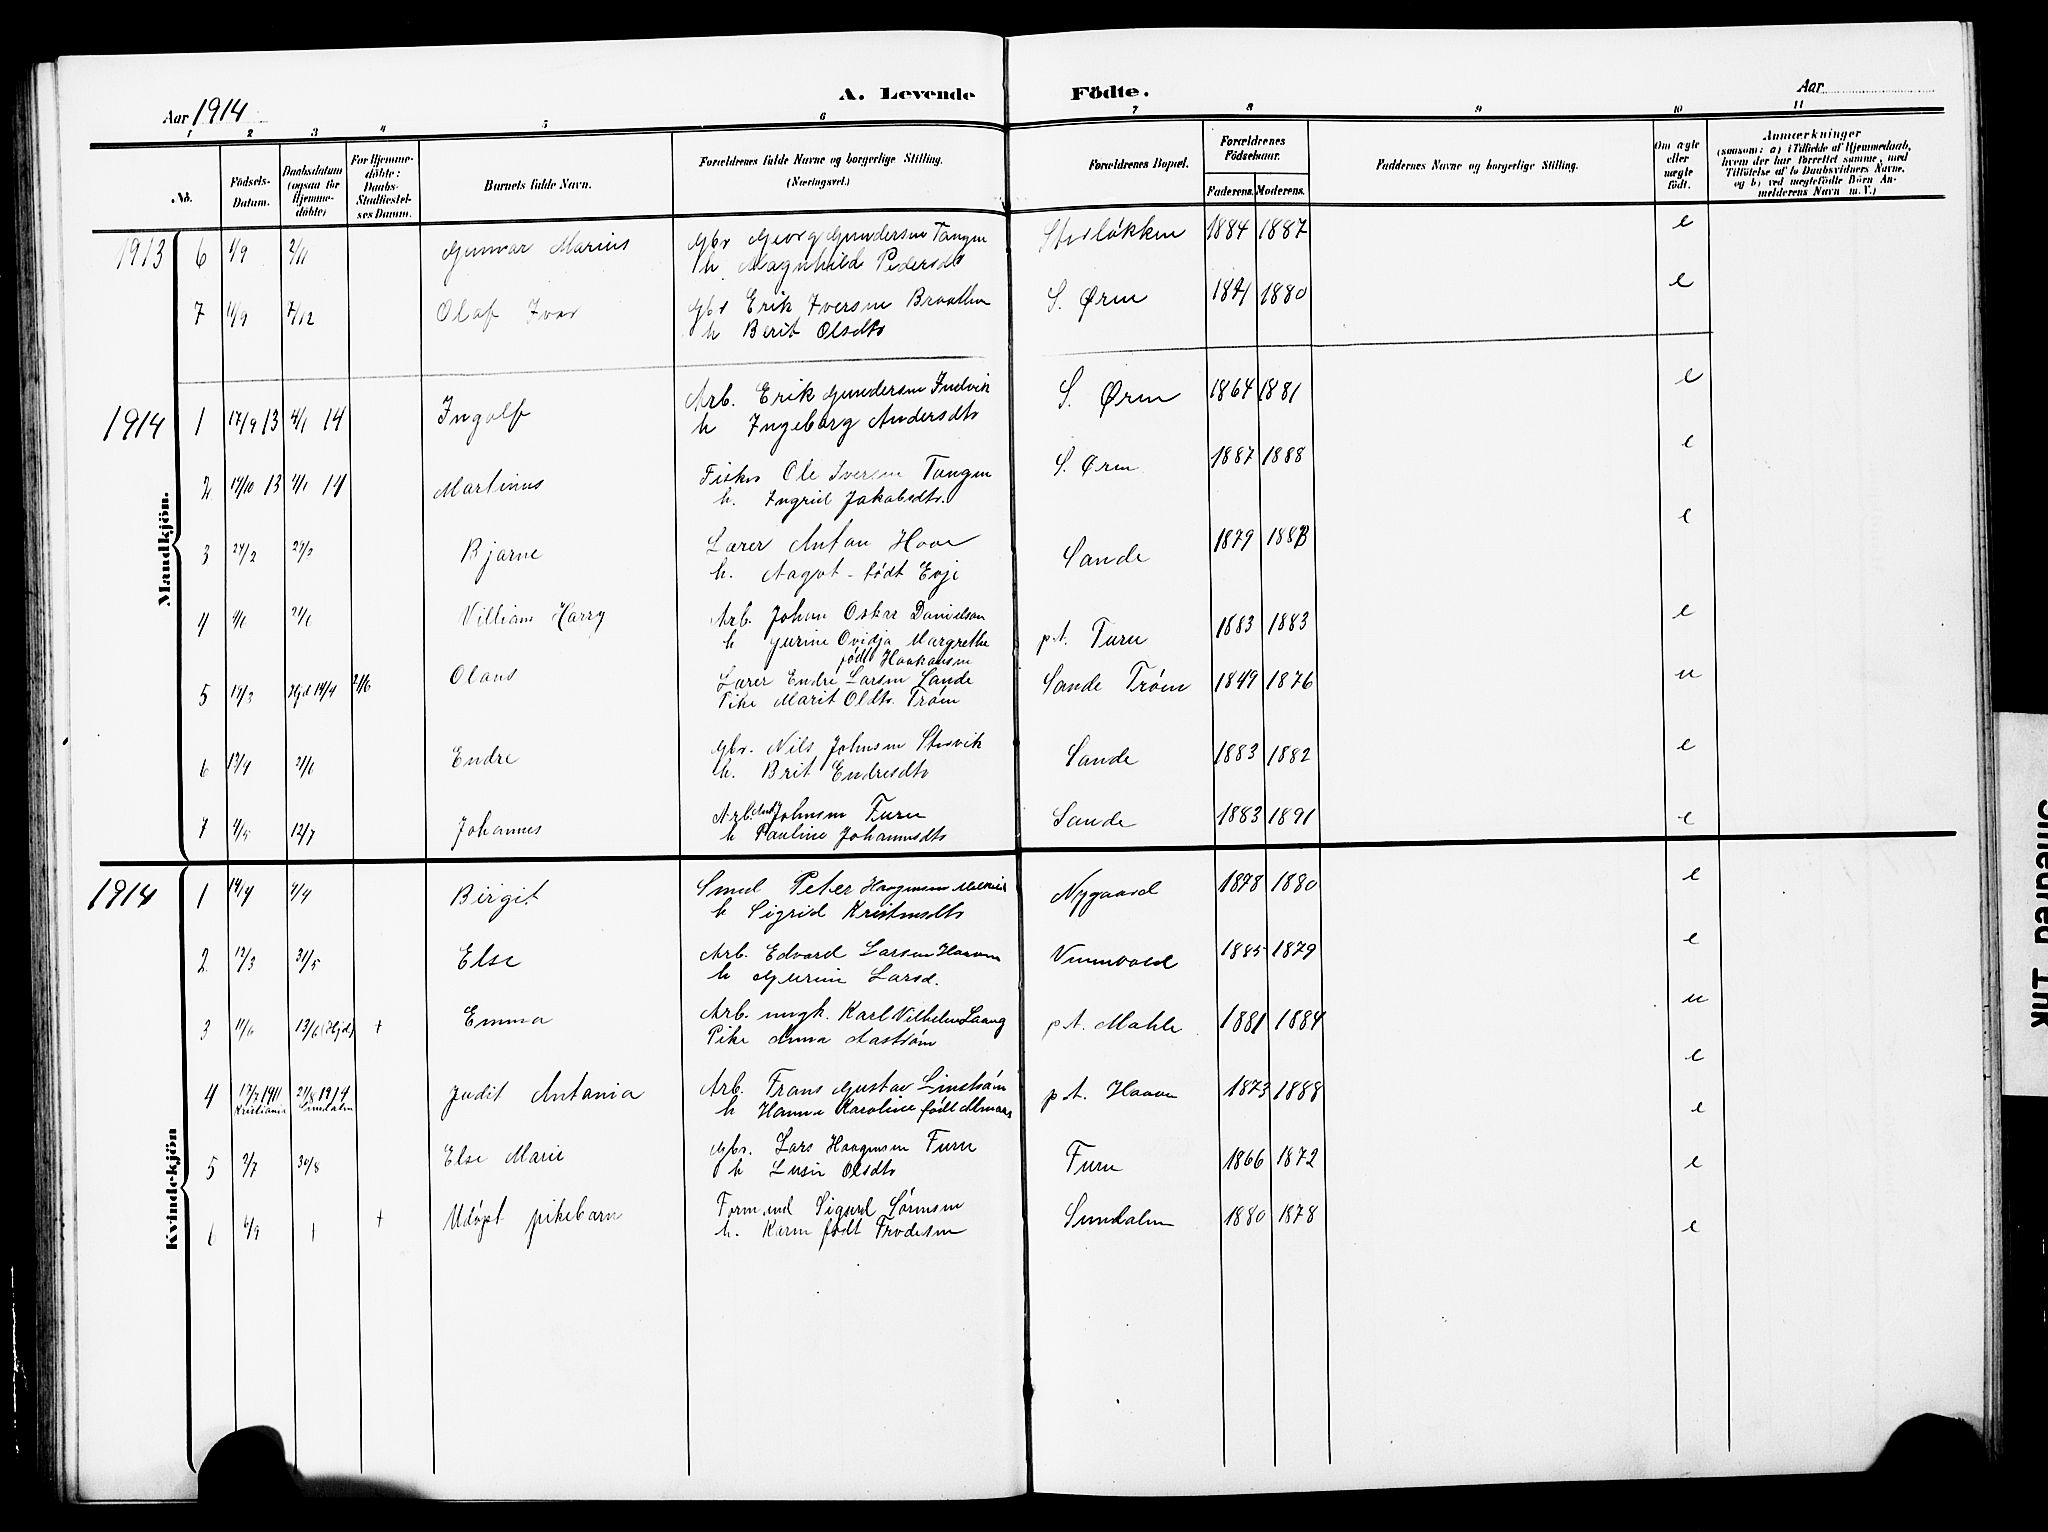 A. Levende Födte.
Aar 1914
Aar
1 2 3 4 5 6 7 8 9 10 11
No.
Födsels-Datum.
Daabsdatum (ogsaa for Hjemmedöbte)
For Hjemmedöbte: Daabs-Stadfæstelses Datum.
Barnets fulde Navn.
Forældrenes fulde Navne og borgerlige Stilling. (Næringsvei.)
Forældrenes Bopæl.
Forældrenes Födselsaar.
Faderens. Moderens.
Faddernes Navne og borgerlige Stilling.
Om ægte eller uægte födt.
Anmærkninger (saasom: a) i Tilfælde af Hjemmedaab, hvem der har forrettet samme, med Tilföielse af to Daabsvidners Navne, og b) ved uægtefödte Börn Anmelderens Navn m. V.)
Mandkjön.
1913 6 1/9 2/11 Gunvar Marius Gbr Georg Gundersen Tangen Storløkken 1884 1887 e
h Magnhild Pedersdtr
7 11/9 7/12 Olaf Ivar Gbr Erik Iversen Braathen S. Øren 1880 e
h Berit Olsdtr
1914 1 17/9 13 4/1 14 Ingolf Arb. Erik Gundersen Indvik S. Øren 1864 1881 e
h Ingeborg Andersdtr
2 14/10 13 4/1 14 Martinus Fisker Ole Iversen Tangen S. Øren 1887 1888 e
h. Ingrid Jakobsdtr.
3 Bjarne Lærer Anton Hove Sande 1879 e
h. Aagot - født Evje
4 William Harry Arb. Johan Oskar Danielson p.t. Furu 1883 1883 e
h Gurine Ovidja Margrethe
født Haakansen
5 Hjd 14/4 Olaus Lærer Endre Larsen Sande Sande Trøen 1849 1876 u
Pike Marit Olsdtr. Trøen
6 Endre Gbr. Nils Johnsen Storvik Sande 1883 1882 e
h. Brit Endresdtr
7 4/5 12/7 Johannes Arb. Johnsen Furu Sande 1883 1891 e
h Pauline Johannesdtr
Kvindekjön
1914 1 Birgit Smed Peter Haagensen Nygaard 1878 1880 e
h Sigrid Kristensdtr
2 12/3 31/5 Else Arb. Edvard Larsen Haaven Vinnvold 1885 1879 e
h Gurine Larsd.
3 11/6 13/6 (Hjd) + Emma Arb. ungk. Karl Vilhelm Laang p.t. Mahle 1881 1884 u
Pike Anna Aastrøm
4 Kristiania Sundalen Judit Antonia Arb. Frans Gustav Linstrøm p.t. Haaven 1873 1888 e
h Hanna Karoline født Almaas
e
5 2/7 30/8 Else Marie Gbr. Lars Haagensen Furu Furu 1866 1872 e
h Lusie Olsdtr
6 6/9 + Udøpt pikebarn Formend Sigurd Sørensen Sundalen 1880 1878 e
h. Karen født Frodesen